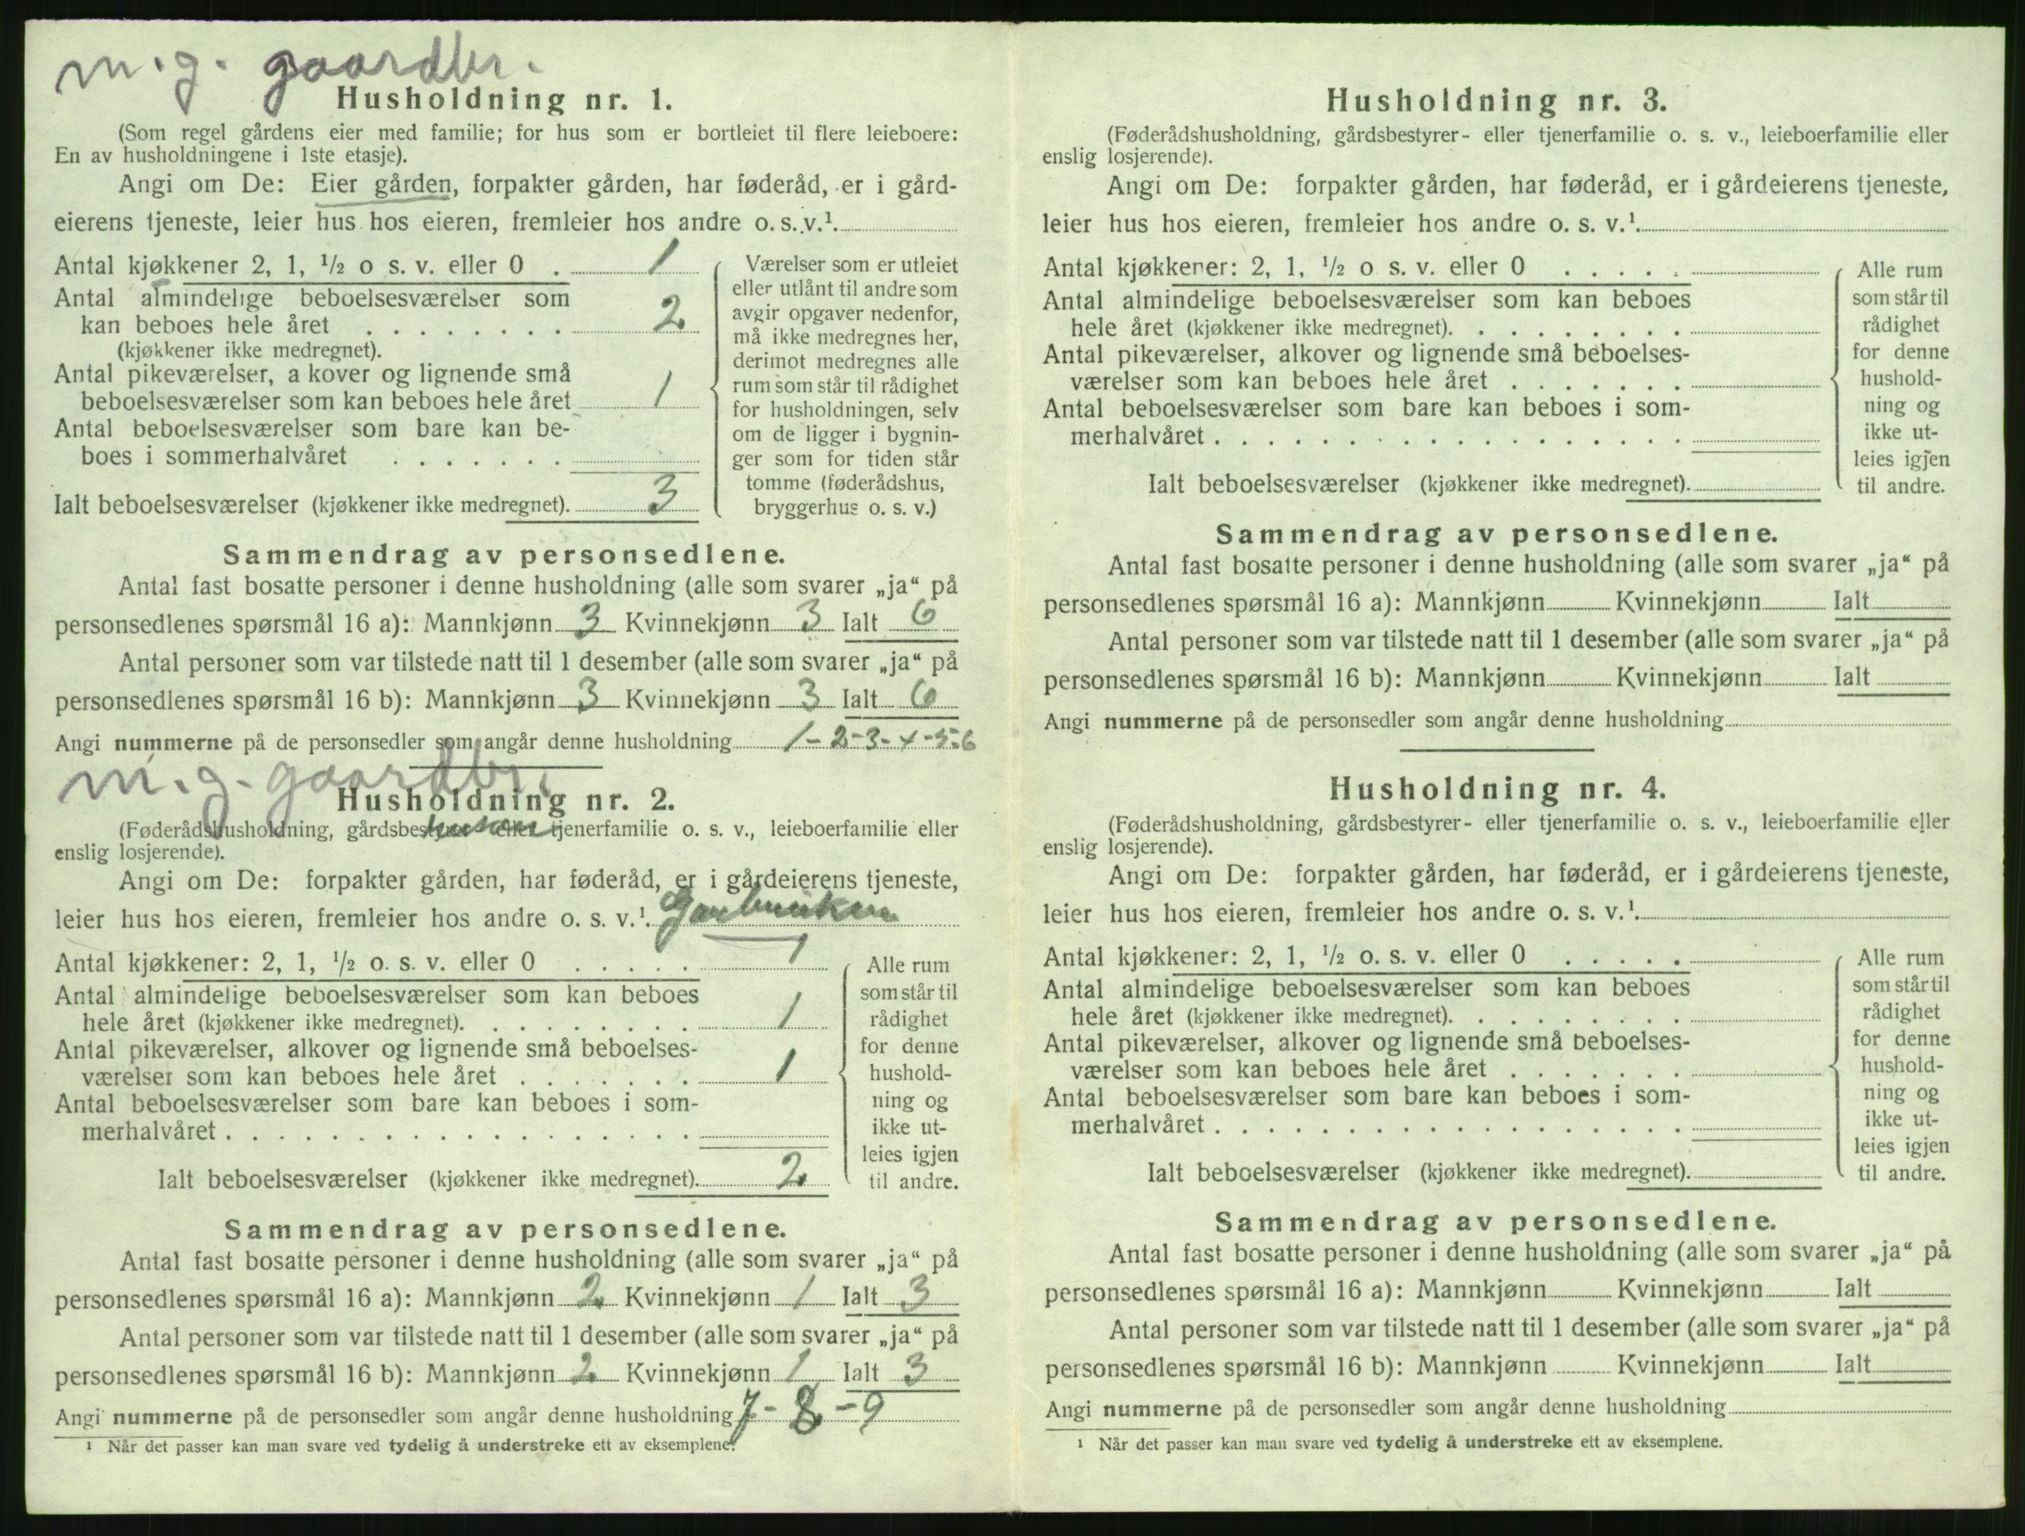 m.g. gaardbr.
Husholdning nr. 1.
(Som regel gårdens eier med familie; for hus som er bortleiet til flere leieboere:
En av husholdningene i 1ste etasje).
Angi om De: Eier gården, forpakter gården, har føderåd, er i gård-
eierens tjeneste, leier hus hos eieren, fremleier hos andre o. s. v.¹
Antal kjøkkener 2, 1, ½ o s. v. eller 0 . 1
Antal almindelige beboelsesværelser som
kan beboes hele året . . . . . . . . 2
(kjøkkener ikke medregnet).
Antal pikeværelser, a kover og lignende små
beboelsesværelser som kan beboes hele året 1
Antal beboelsesværelser som bare kan be-
boes i sommerhalvåret . . . . . . .
Ialt beboelsesværelser (kjøkkener ikke medregnet). 3
Værelser som er utleiet
eller utlånt til andre som
avgir opgaver nedenfor,
må ikke medregnes her,
derimot medregnes alle
rum som står til rådighet
for husholdningen, selv
om de ligger i bygnin-
ger som for tiden står
tomme (føderådshus,
bryggerhus o. s. v.)
Sammendrag av personsedlene.
Antal fast bosatte personer i denne husholdning (alle som svarer „ja“ på
personsedlenes spørsmål 16 a): Mannkjønn 3 Kvinnekjønn 3 Ialt 6
Antal personer som var tilstede natt til 1 desember (alle som svarer „ja“ på
personsedlenes spørsmål 16 b): Mannkjønn 3 Kvinnekjønn 3 Ialt 6
Angi nummerne på de personsedler som angår denne husholdning 1-2-3-4-5-6
m.g. gaardbr.
Husholdning nr. 2.
(Føderådshusholdning, gårdsbestyrer- eller tjenerfamilie o. s. v., leieboerfamilie eller
enslig losjerende).
Angi om De: forpakter gården, har føderåd, er i gårdeierens tjeneste,
leier hus hos eieren, fremleier hos andre o. s. v.¹
Antal kjøkkener: 2, 1, ½ o. s. v. eller 0 . . . . . 1
Antal almindelige beboelsesværelser som kan beboes
hele året (kjøkkener ikke medregnet). . . . . . . . . 1
Antal pikeværelser, alkover og lignende små beboelses-
værelser som kan beboes hele året . . . . . . . 1
Antal beboelsesværelser som bare kan beboes i som-
merhalvåret . . . . . . . . . . . . . . . . . .
Ialt beboelsesværelser (kjøkkener ikke medregnet). 2
Alle rum
som står til
rådighet
for denne
hushold-
ning og
ikke ut-
leies igjen
til andre.
Sammendrag av personsedlene.
Antal fast bosatte personer i denne husholdning (alle som svarer „ja“ på
personsedlenes spørsmål 16 a): Mannkjønn 2 Kvinnekjønn 1 Ialt 3
Antal personer som var tilstede natt til 1 desember (alle som svarer „ja“ på
personsedlenes spørsmål 16 b): Mannkjønn 2 Kvinnekjønn 1 Ialt 3
Angi nummerne på de personsedler som angår denne husholdning 7-8-9
¹ Når det passer kan man svare ved tydelig å understreke ett av eksemplene.
Husholdning nr. 3.
(Føderådshusholdning, gårdsbestyrer- eller tjenerfamilie o. s. v., leieboerfamilie eller
enslig losjerende).
Angi om De: forpakter gården, har føderåd, er i gårdeierens tjeneste,
leier hus hos eieren, fremleier hos andre o. s. v.¹
Antal kjøkkener: 2, 1, ½ o s. v. eller 0 . . . . .
Antal almindelige beboelsesværelser som kan beboes
hele året (kjøkkener ikke medregnet). . . . . . . . .
Antal pikeværelser, alkover og lignende små beboelses-
værelser som kan beboes hele året . . . . . . .
Antal beboelsesværelser som bare kan beboes i som-
merhalvåret . . . . . . . . . . . . . . . . . .
Ialt beboelsesværelser (kjøkkener ikke medregnet).
Alle rum
som står til
rådighet
for denne
hushold-
ning og
ikke ut-
leies igjen
til andre.
Sammendrag av personsedlene.
Antal fast bosatte personer i denne husholdning (alle som svarer „ja“ på
personsedlenes spørsmål 16 a): Mannkjønn Kvinnekjønn Ialt
Antal personer som var tilstede natt til 1 desember (alle som svarer „ja“ på
personsedlenes spørsmål 16 b): Mannkjønn Kvinnekjønn Ialt
Angi nummerne på de personsedler som angår denne husholdning
Husholdning nr. 4.
(Føderådshusholdning, gårdsbestyrer- eller tjenerfamilie o. s. v., leieboerfamilie eller
enslig losjerende).
Angi om De: forpakter gården, har føderåd, er i gårdeierens tjeneste,
leier hus hos eieren, fremleier hos andre o. s. v.¹
Antal kjøkkener: 2, 1, ½ o. s. v. eller 0 . . . . .
Antal almindelige beboelsesværelser som kan beboes
hele året (kjøkkener ikke medregnet). . . . . . . . .
Antal pikeværelser, alkover og lignende små beboelses-
værelser som kan beboes hele året . . . . . . .
Antal beboelsesværelser som bare kan beboes i som-
merhalvåret . . . . . . . . . . . . . . . . . .
Ialt beboelsesværelser (kjøkkener ikke medregnet).
Alle rum
som står til
rådighet
for denne
hushold-
ning og
ikke ut-
leies igjen
til andre.
Sammendrag av personsedlene.
Antal fast bosatte personer i denne husholdning (alle som svarer „ja“ på
personsedlenes spørsmål 16 a): Mannkjønn Kvinnekjønn Ialt
Antal personer som var tilstede natt til 1 desember (alle som svarer „ja“ på
personsedlenes spørsmål 16 b): Mannkjønn Kvinnekjønn Ialt
Angi nummerne på de personsedler som angår denne husholdning
¹ Når det passer kan man svare ved tydelig å understreke ett av eksemplene.